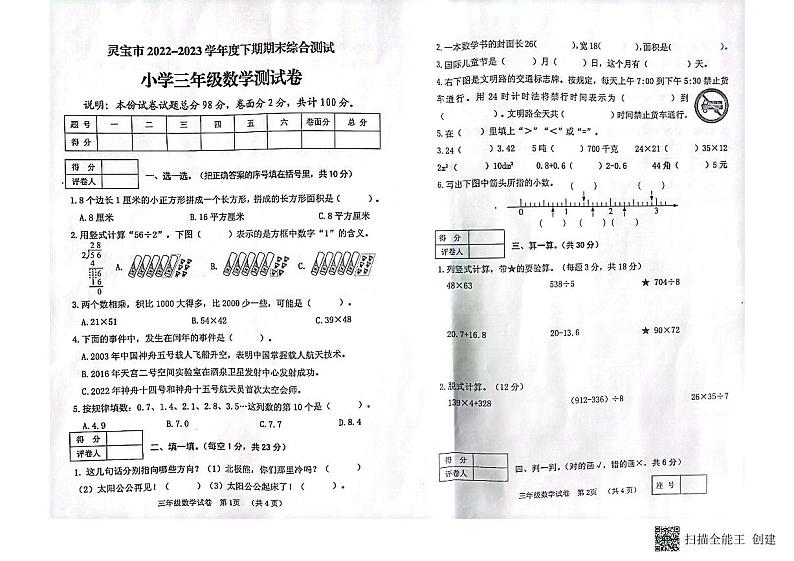 灵宝市 2022-2023 学年度下期期末综合测试
小学三年级数学测试卷
说明：本份试卷试题总分 98 分，卷面分 2 分，共计 100 分。
题 号 一 二 三 四 五 六 卷面分 总 分
得 分
得 分
评卷人
一、选一选。（把正确答案的序号填在括号里，共 10 分）
1. 8 个边长 1 厘米的小正方形拼成一个长方形，拼成的长方形面积是（ ）。
A. 8 厘米 B. 16 平方厘米 C. 8 平方厘米
2. 用竖式计算“56÷2”，下图（ ）表示的是方框中数字“1”的含义。
2 8
2 5 6
4
1 6
1 6
0
A. B. C.
3. 两个数相乘，积比 1000 大得多，比 2000 少一些，可能是（ ）。
A. 21×51 B. 54×42 C. 39×48
4. 下面的事件中，发生在闰年的事件是（ ）。
A. 2003 年中国神舟五号载人飞船升空，表明中国掌握载人航天技术。
B. 2016 年天宫二号空间实验室在酒泉卫星发射中心发射成功。
C. 2022 年神舟十四号和神舟十五号航天员首次太空会师。
5. 按规律填数：0.7、1.4、2.1、2.8、3.5…这列数的第 10 个是（ ）。
A. 4.9 B. 7.0 C. 7.7 D. 8.4
得 分
评卷人
二、填一填。（每空 1 分，共 23 分）
1. 这几句话分别指向哪些方向？（1）北极熊，你们那里冷吗？（ ）
（2）太阳公公再见！（ ）（3）太阳公公起床了！（ ）。
三年级数学试卷 第 1页 （共 4 页）
2. 一本数学书的封面长 26（ ），宽 19（ ），面积是（ ）。
3. 国际儿童节是（ ）月（ ）日，这个月有（ ）天。
4. 右下图是文明路的交通标志牌。按规定，每天上午 7:00 到下午 5:30 禁止货
车通行。用 24 时计时法将禁行时间表示为（ ）到
（ ）。文明路全天共（ ）时间禁止货车通行。
5. 在（ ）里填上“＞”“＜”或“=”。
3.24（ ）3.42 5 吨（ ）700 千克 24×21（ ）35×12
2m²（ ）10dm² 0.8+0.6（ ）2-0.6 44 角（ ）5 元
6. 写出下图中箭头所指的小数。
（ ） （ ）
0 1 2 3
（ ） （ ） （ ）
得 分
评卷人
三、算一算。（共 30 分）
1. 列竖式计算，带★的要验算。（每题 3 分，共 18 分）
48×63 538÷5 ★ 704÷8
20.7+16.8 20-13.6 ★ 90×72
2. 脱式计算。（12 分）
139×4+328 （912-336）÷8 26×35÷7
得 分
评卷人
四、判一判。（对的画√，错的画×。共 6 分）
三年级数学试卷 第 2页 （共 4 页）
座 号
扫描全能王 创建